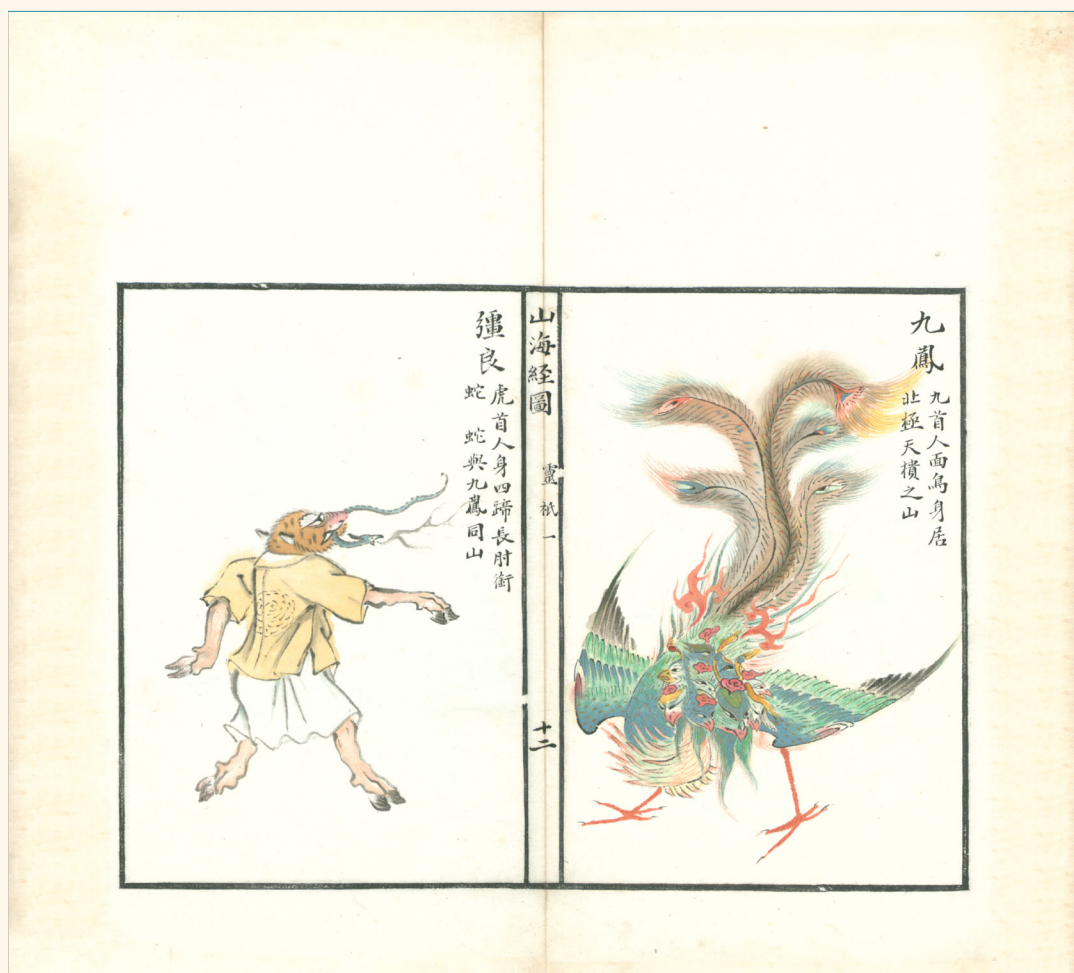 九鳳
九首人面鳥身居
北極天樻之山
山海経圖
靈祇一
十二
彊良
虎首人身四蹄長肘銜
蛇 蛇與九鳳同山